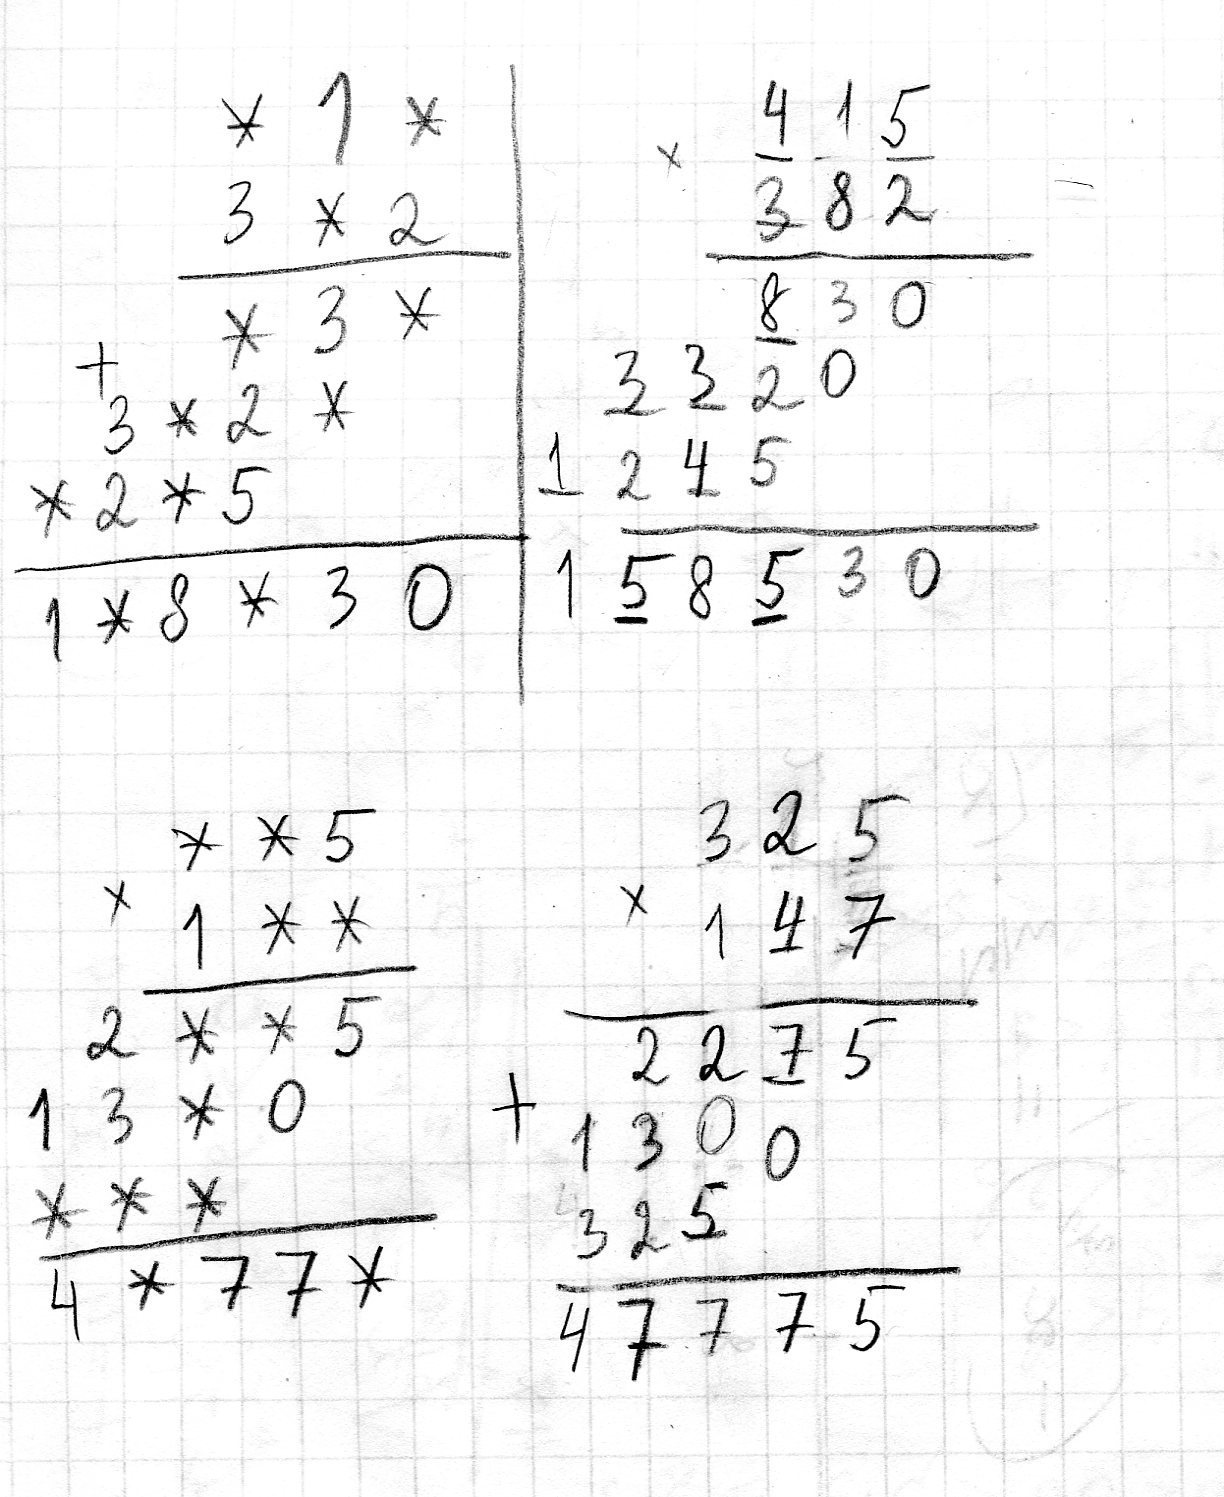 * 1 *
3 * 2
* 3 *
+ 3 * 2 *
* 2 * 5
1 * 8 * 3 0
4 1 5
× 3 8 2 =
8 3 0
3 3 2 0
1 2 4 5
1 5 8 5 3 0
* * 5
× 1 * *
2 * * 5
1 3 * 0
* * *
4 * 7 7 *
3 2 5
× 1 4 7
2 2 7 5
+ 1 3 0 0
3 2 5
4 7 7 7 5